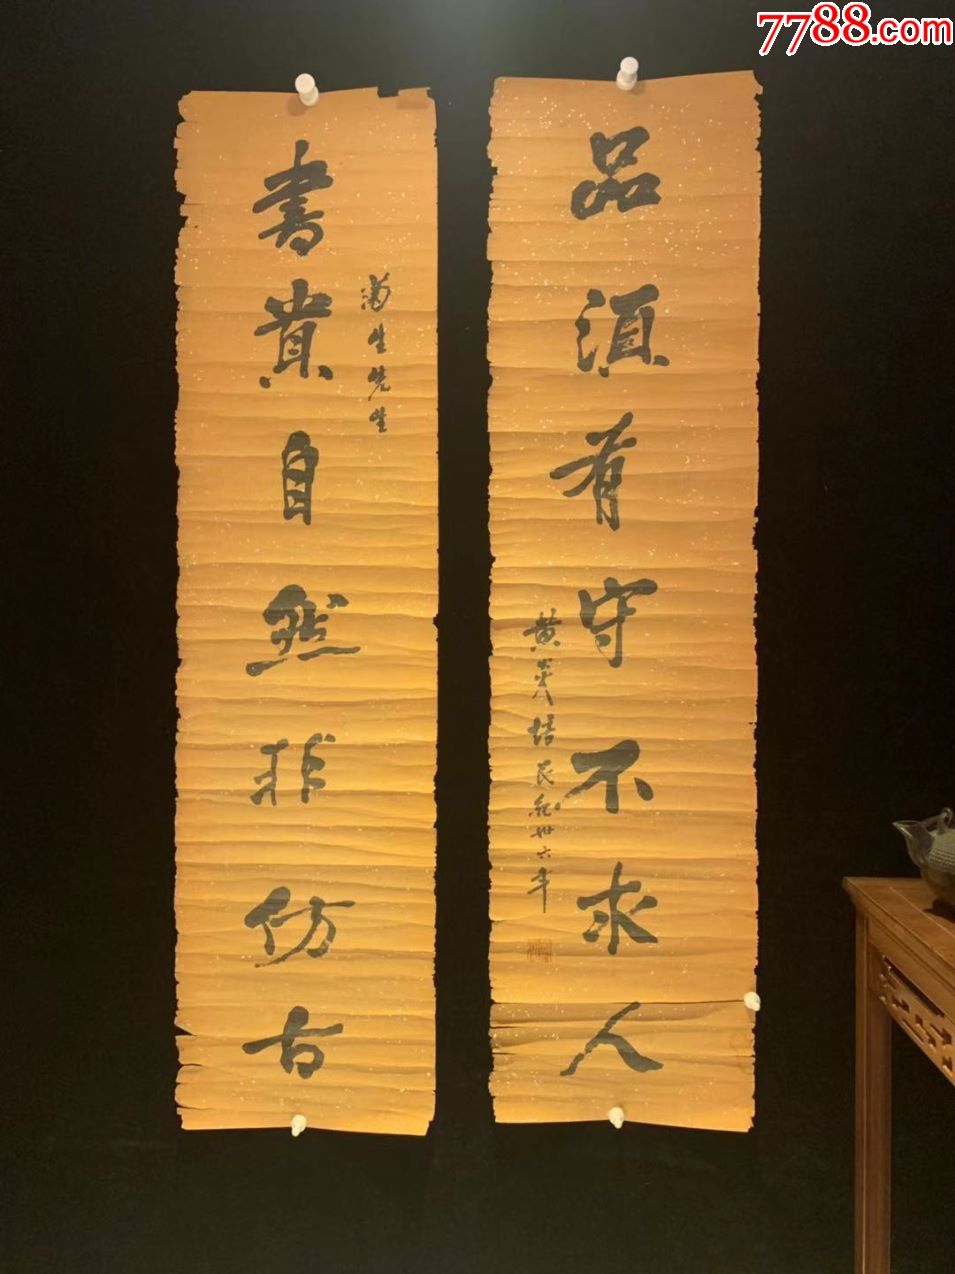 7788.com
品須有守不求人
黄炎培民紀卅六年
生先生
書貴自然非仿古